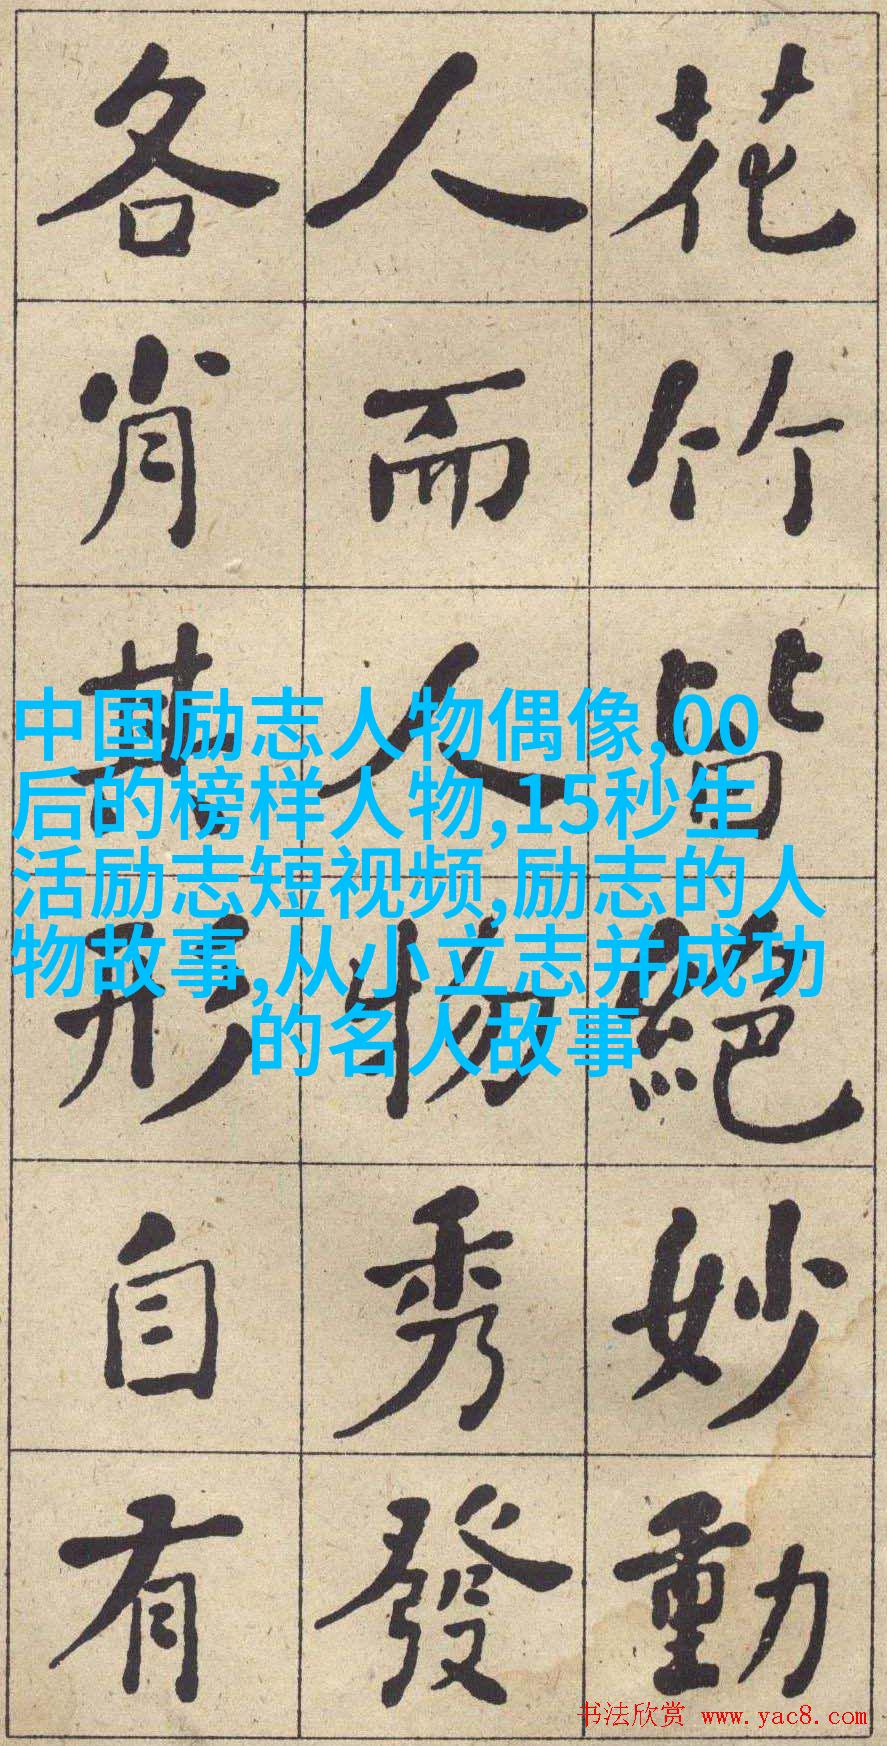 花竹皆絕妙動
人而人物秀發
各肖其形自有
中国励志人物偶像,00
后的榜样人物,15秒生
活励志短视频,励志的人
物故事,从小立志并成功
的名人故事
书法欣赏 www.yac8.com